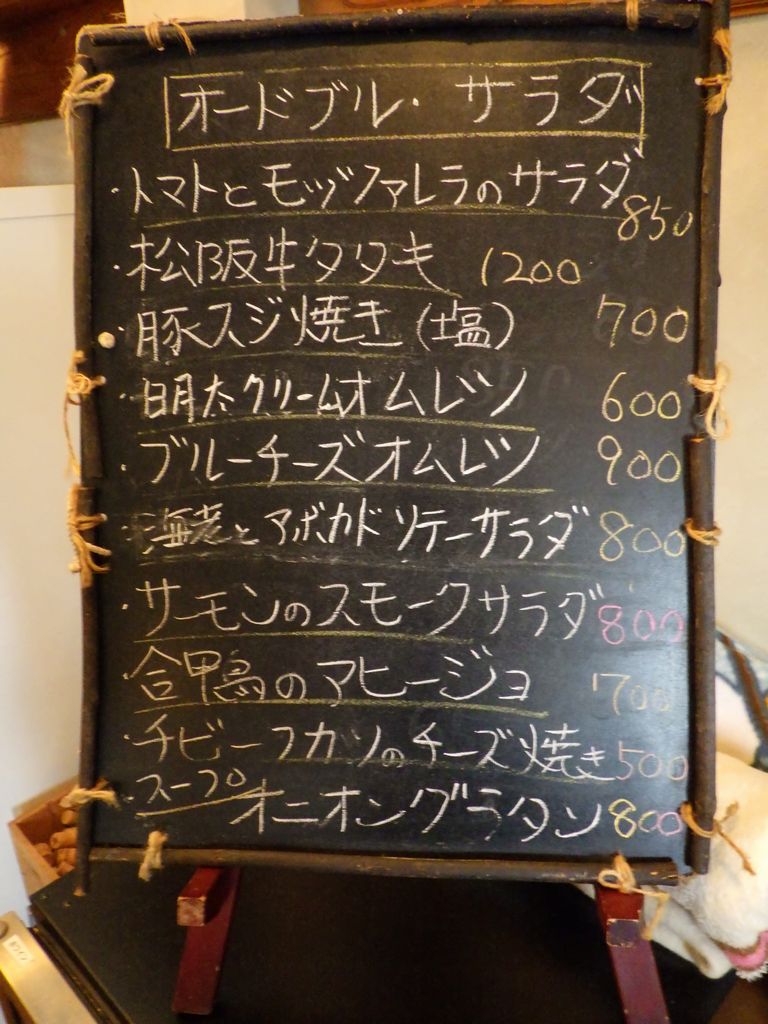 オードブル・サラダ
・トマトとモッヅァレラのサラダ 850
・松阪牛タタキ 1200
・豚スジ焼き(塩) 700
・明太クリームオムレツ 600
・ブルーチーズオムレツ 900
・海老とアボカドソテーサラダ 800
・サーモンのスモークサラダ 800
・合甲鳥のアヒージョ 700
・チビーフカツのチーズ焼き 500
・スープ オニオングラタン 800